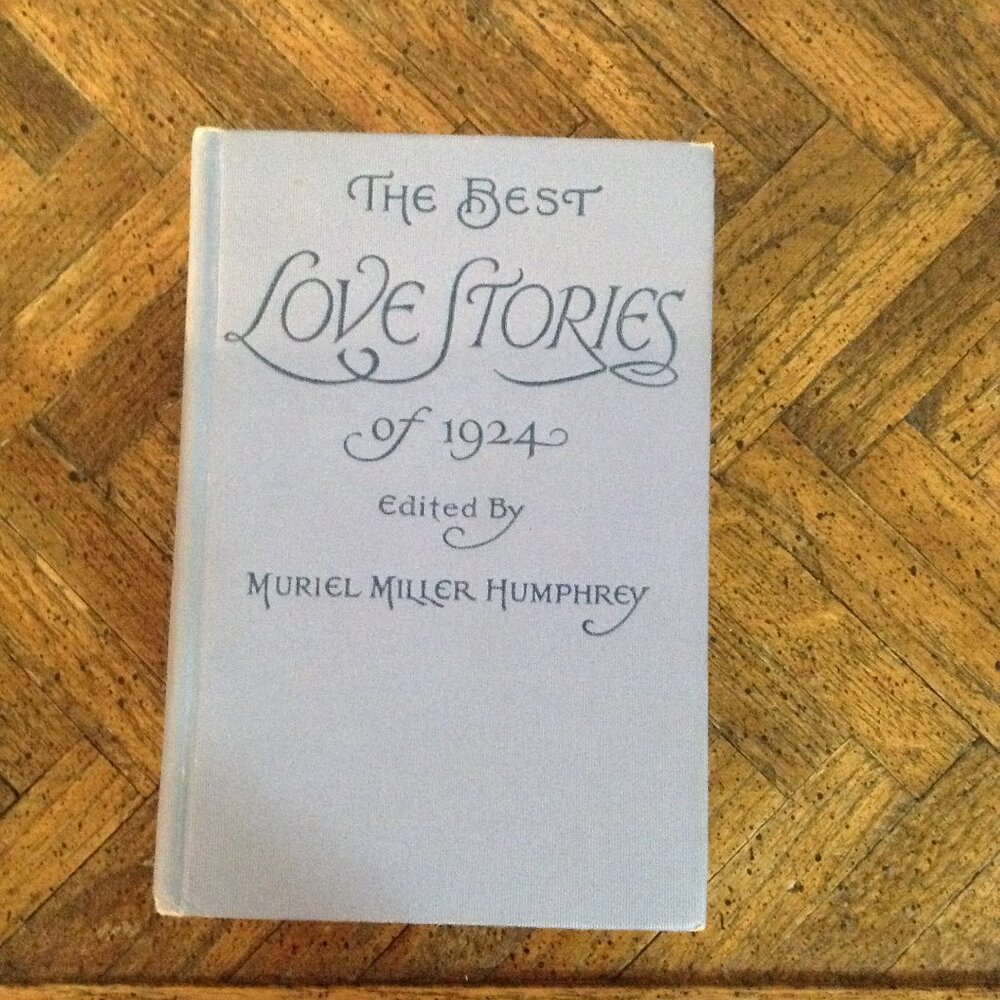 The Best
Love Stories
of 1924
Edited By
Muriel Miller Humphrey